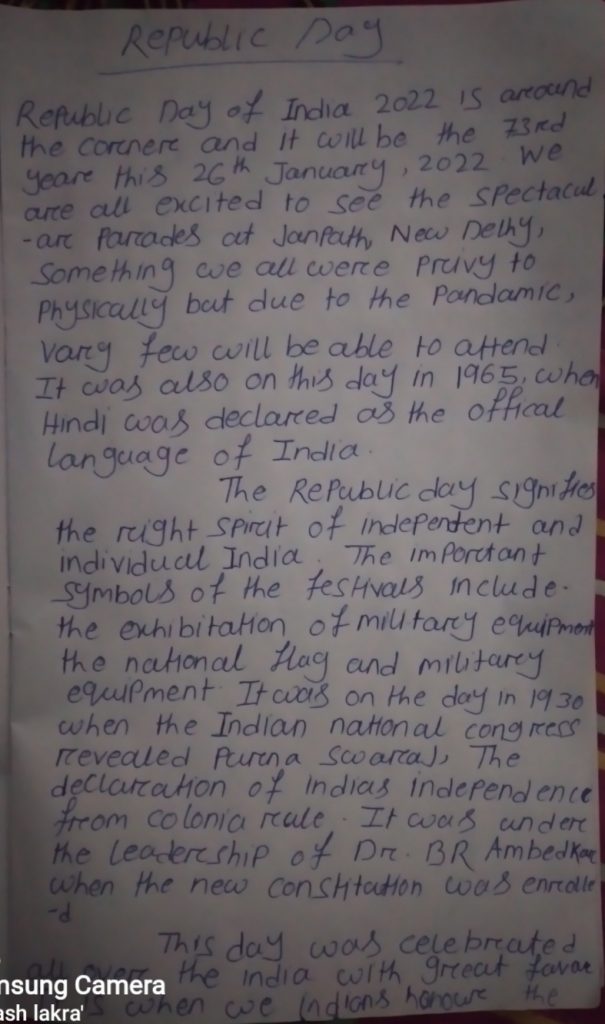 Republic Day
Republic Day of India 2022 is around
the corner and it will be the 73rd
year this 26th January, 2022 We
are all excited to see the spectacul
-ar Parades at Janpath, New Delhy,
Something we all were privy to
Physically but due to the Pandamic,
vary few will be able to attend
It was also on this day in 1965, when
Hindi was declared as the offical
language of India.
The Republic day signifies
the right spirit of independent and
individual India. The important
symbols of the festivals include.
the exhibitation of military equipment
the national flag and military
equipment. It was on the day in 1930
when the Indian national congress
revealed Purna Swaraj, The
declaration of indias independence
from colonia rule. It was under
the leadership of Dr. BR Ambedkar
when the new constitution was enrolle
-d
This day was celebrated
all over the india with great favar
when we Indians honour the
nsung Camera
ash lakra'